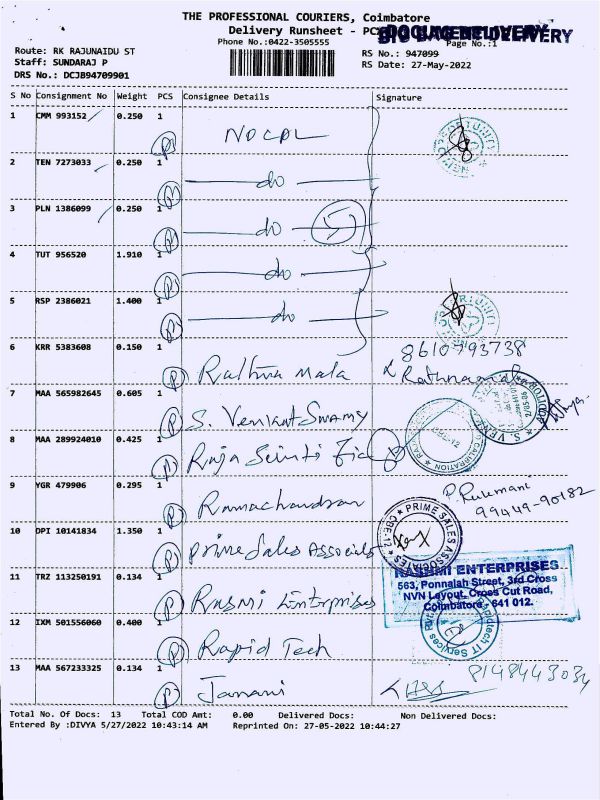 THE PROFESSIONAL COURIERS, Coimbatore
Delivery Runsheet - PCS
Phone No.:0422-3505555
Page No.:1
Route: RK RAJUNAIDU ST
Staff: SUNDARAJ P
DRS No.: DCJB94709901
RS No.: 947099
RS Date: 27-May-2022
S No Consignment No Weight PCS Consignee Details Signature
1 CMM 993152 0.250 1 NOCPL
2 TEN 7273033 0.250 1 do
3 PLN 1386099 0.250 1 do
4 TUT 956520 1.910 1 do
5 RSP 2386021 1.400 1 do
6 KRR 5383608 0.150 1 Rathna Mala 8610793738
7 MAA 565982645 0.605 1 S. Venkant Swamy
8 MAA 289924010 0.425 1 Raja
9 YGR 479906 0.295 1 Ramachandran P. Rukumani
99449-90182
10 DPI 10141834 1.350 1 Prime Sales Associats
PRIME SALES ASSOCIATES
CBE-12
11 TRZ 113250191 0.134 1 Rasmi Enterprises
RASHMI ENTERPRISES
563, Ponnaiah Street, 3rd Cross
NVN Layout, Cross Cut Road,
Coimbatore - 641 012.
12 IXM 501556060 0.400 1 Rapid Tech
13 MAA 567233325 0.134 1 Janani 8148443034
Total No. Of Docs: 13 Total COD Amt: 0.00 Delivered Docs: Non Delivered Docs:
Entered By :DIVYA 5/27/2022 10:43:14 AM Reprinted On: 27-05-2022 10:44:27